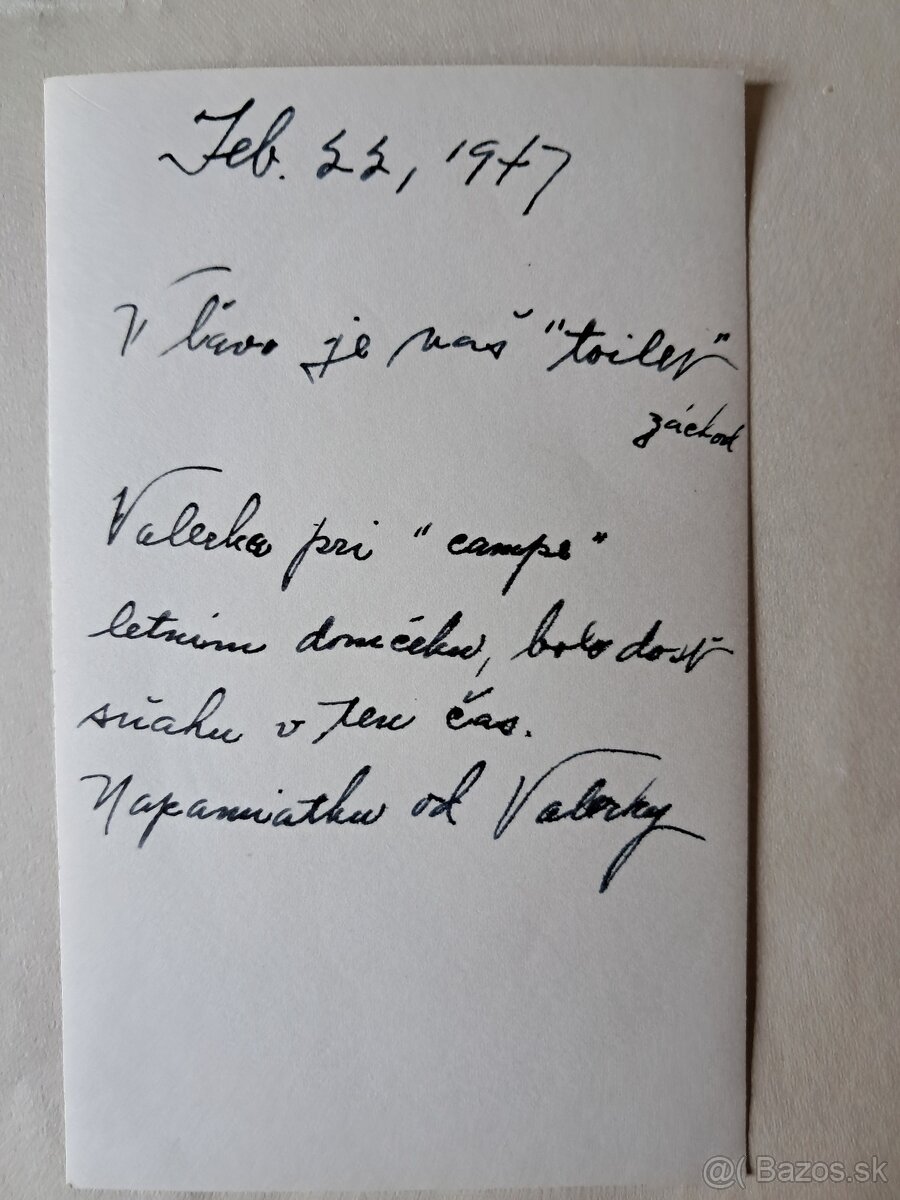 Feb. 22, 1947
V ľavo je naš "toilet"
záchod
Valerka pri "campe"
letnim domčeku, bolo dosť
sňahu v ten čas.
Napamiatku od Valerky
@( Bazos.sk